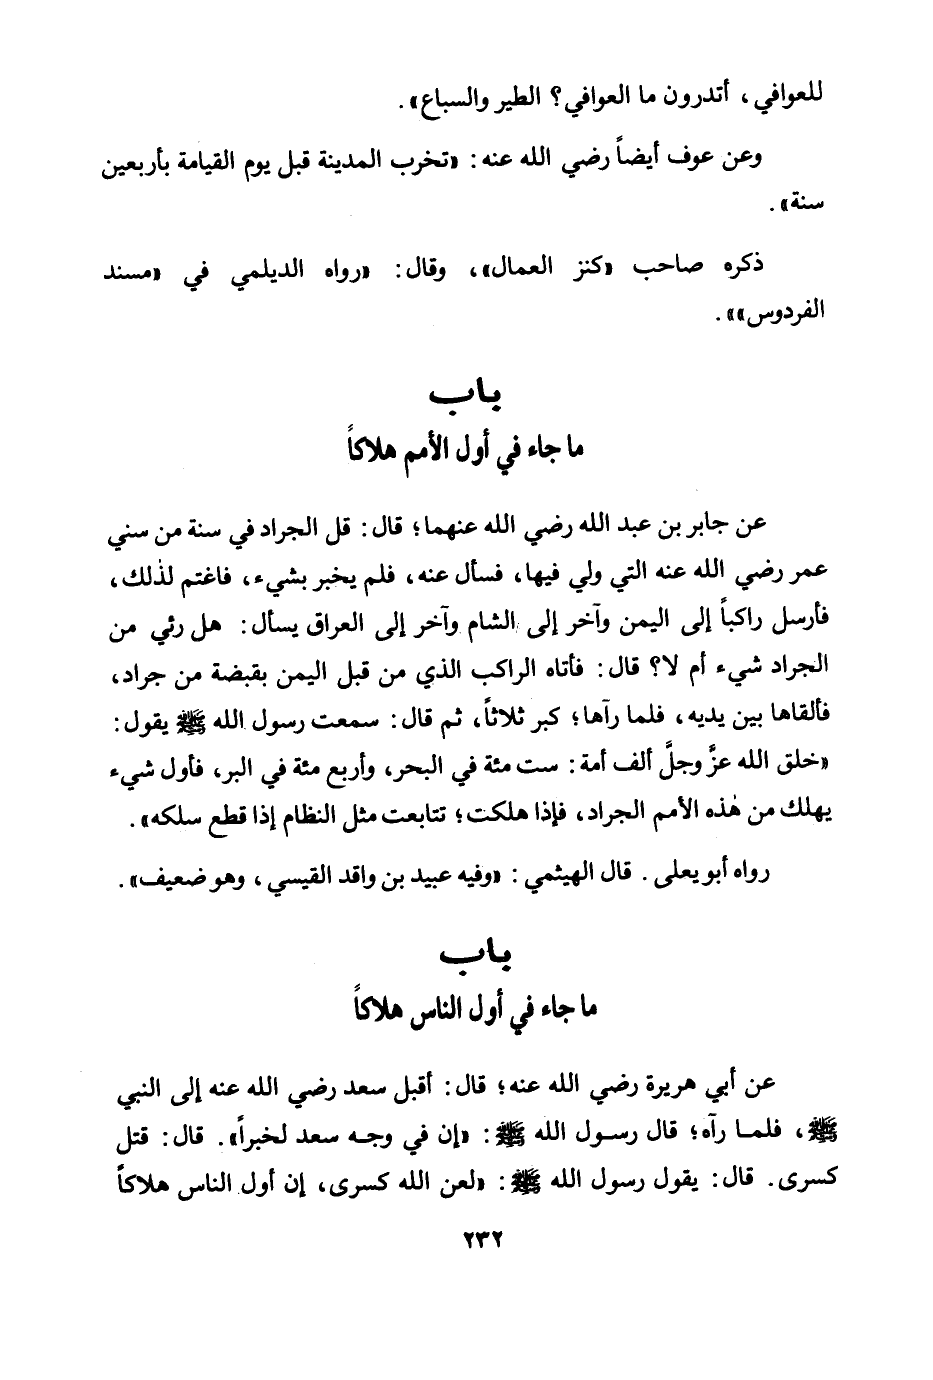 للعوافي، أتدرون ما العوافي؟ الطير والسباع».
وعن عوف أيضاً رضي الله عنه: «تخرب المدينة قبل يوم القيامة بأربعين
سنة».
ذكره صاحب «كنز العمال»، وقال: «رواه الديلمي في «مسند
الفردوس»».
باب
ما جاء في أول الأمم هلاكاً
عن جابر بن عبد الله رضي الله عنهما؛ قال: قل الجراد في سنة من سني
عمر رضي الله عنه التي ولي فيها، فسأل عنه، فلم يخبر بشيء، فاغتم لذٰلك،
فأرسل راكباً إلى اليمن وآخر إلى الشام وآخر إلى العراق يسأل: هل رئي من
الجراد شيء أم لا؟ قال: فأتاه الراكب الذي من قبل اليمن بقبضة من جراد،
فألقاها بين يديه، فلما رآها؛ كبر ثلاثاً، ثم قال: سمعت رسول الله ﷺ يقول:
«خلق الله عزَّ وجلَّ ألف أمة: ست مئة في البحر، وأربع مئة في البر، فأول شيء
يهلك من هٰذه الأمم الجراد، فإذا هلكت؛ تتابعت مثل النظام إذا قطع سلكه».
رواه أبو يعلى. قال الهيثمي: «وفيه عبيد بن واقد القيسي، وهو ضعيف».
باب
ما جاء في أول الناس هلاكاً
عن أبي هريرة رضي الله عنه؛ قال: أقبل سعد رضي الله عنه إلى النبي
ﷺ، فلما رآه؛ قال رسول الله ﷺ: «إن في وجه سعد لخبراً». قال: قتل
كسرى. قال: يقول رسول الله ﷺ: «لعن الله كسرى، إن أول الناس هلاكاً
٢٣٢